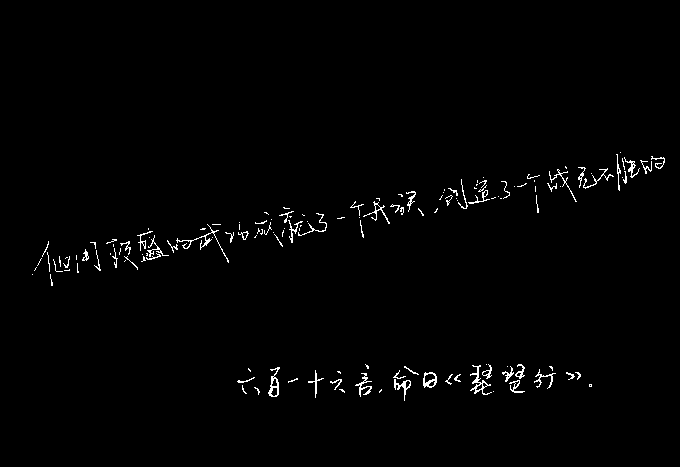 他们顶盛的武功成就了一个民族，创造了一个战无不胜的
六百一十六言，命曰《琵琶行》。